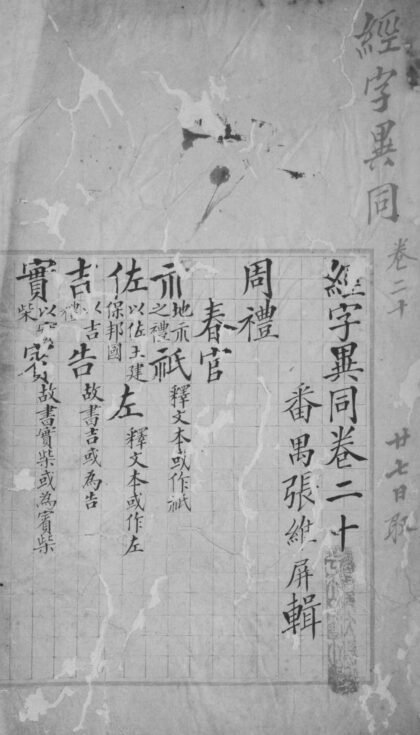 經字異同 卷二十 廿七日
經字異同卷二十
番禺張維屏輯
周禮
春官
示 地示之禮 祇 釋文本或作祇
佐 以佐王建保邦國 左 釋文本或作左
吉 以吉禮 告 故書吉或為告
實 以柴 賓 故書實柴或為賓柴